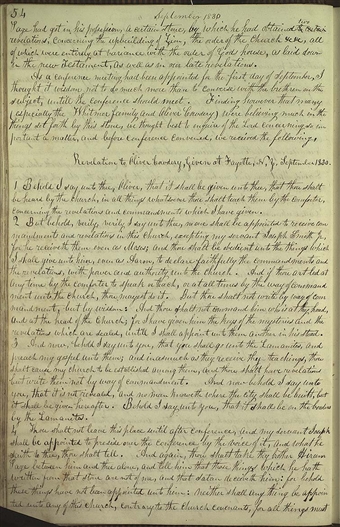 54
September 1830
Page had got in his possession, a certain stone, by which he had obtained two certain
revelations, concerning the upbuilding of Zion, the order of the Church &c &c, all
of which were entirely at variance with the order of Gods house, as laid down
in the new Testament, as well as in our late revelations.
As a conference meeting had been appointed for the first day of September, I
thought it wisdom not to do much more than to converse with the brethren on the
subject, untill the conference should meet. Finding however that many
(especially the Whitmer family and Oliver Cowdery) were believing much in the
things set forth by this stone, we thought best to enquire of the Lord concerning so im-
portant a matter, and before conference convened, we received the following.
Revelation to Oliver Cowdery, Given at Fayette, N.Y. September 1830.
1 Behold I say unto thee, Oliver, that it shall be given unto thee, that thou shalt
be heard by the church, in all things whatsoever thou shalt teach them by the comforter,
concerning the revelations and commandments which I have given.
2 But behold, verily, verily I say unto thee, no one shall be appointed to receive com-
mandments and revelations in this church, excepting my servant Joseph Smith jr,
for he receiveth them even as Moses; and thou shalt be obedient unto the things which
I shall give unto him, even as Aaron, to declare faithfully the commandments and
the revelations, with power and authority unto the church. And if thou art led at
any time by the comforter to speak or teach, or at all times by the way of command
ment unto the church, thou mayest do it. But thou shalt not write by way of com-
mandment, but by wisdom: And thou shalt not command him who is at thy head,
and at the head of the church; for I have given him the keys of the mysteries and the
revelations which are sealed, untill I shall appoint unto them another in his stead.
3 And now, behold I say unto you, that you shall go unto the Lamanites, and
preach my gospel unto them; and inasmuch as they receive thy teachings, thou
shalt cause my church to be established among them, and thou shalt have revelations
but write them not by way of commandment. And now behold I say unto
you, that it is not revealed, and no man knoweth where the city shall be built, but
it shall be given hereafter. Behold I say unto you, that it shall be on the borders
by the Lamanites.
Thou shalt not leave this place until after conference, and my servant Joseph
shall be appointed to preside over the conference by the voice of it, and what he
saith to thee, thou shalt tell. And again, thou shalt take thy brother Hiram
Page between him and thee alone, and tell him that those things which he hath
written from that stone are not of me, and that satan deceiveth him: for behold
these things have not been appointed unto him: neither shall any thing be appoin
ted unto any of this church, contrary to the church covenants, for all things must